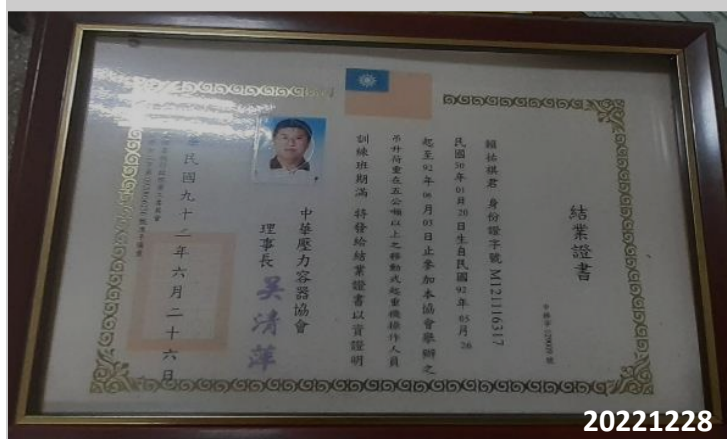 結業證書
賴祐祺君 身份證字號 M121116317
民國50年01月20日生自民國92年05月26
起至92年06月05日止參加本協會舉辦之
吊升荷重在五公噸以上之移動式起重機操作人員
訓練班期滿 特發給結業證書以資證明
中華壓力容器協會
理事長 吳清萍
華民國九十二年六月二十六日
20221228